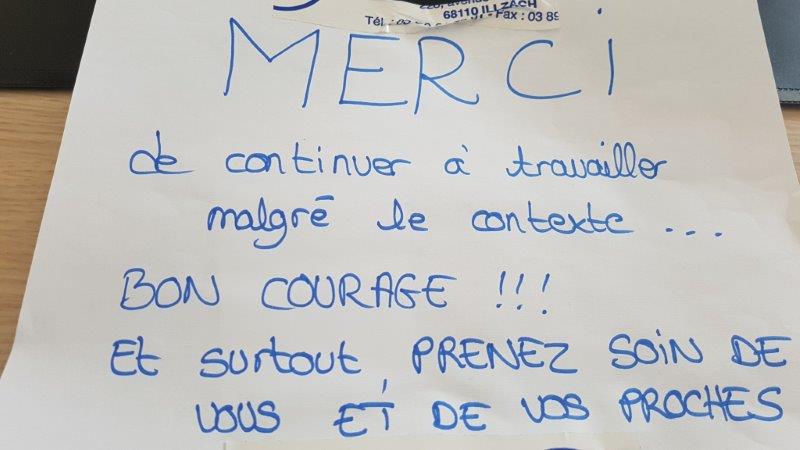 68110 ILLZACH
Fax : 03 89
MERCI
de continuer à travailler
malgré le contexte ...
BON COURAGE !!!
Et surtout, PRENEZ SOIN DE
VOUS ET DE VOS PROCHES